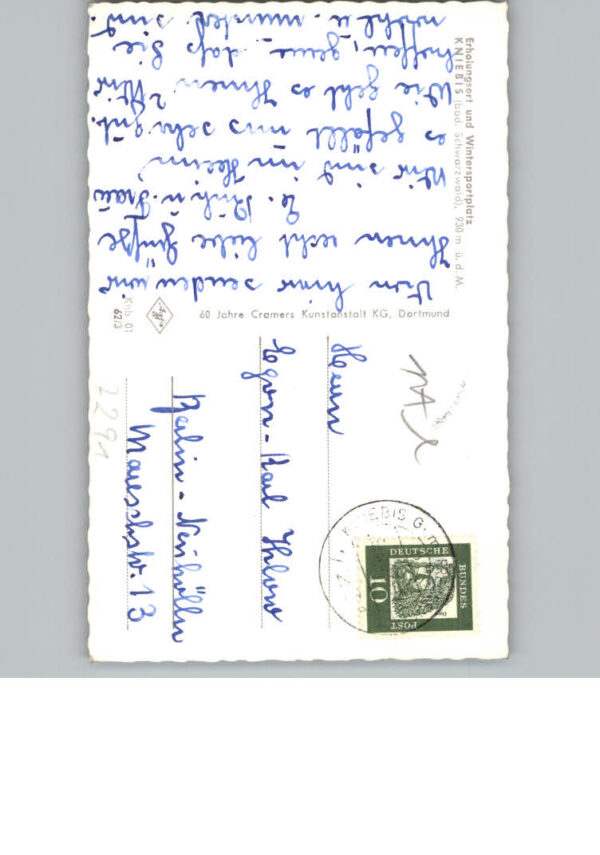 Erholungsort und Wintersportplatz
KNIEBIS (bad. Schwarzwald), 930 m ü. d. M.
Von hier senden wir
Ihnen recht liebe Grüße
wir sind im Heim
es gefällt uns sehr gut.
Wie geht es Ihnen? Wir
hoffen, gerne, daß Sie
wohl u. munter sind
60 Jahre Cramers Kunstanstalt KG, Dortmund
Knib. 01
62/3
Agfa
Herrn
Egon-Karl Ihlow
Berlin-Neukölln
Mareschstr. 13
2291
KNIEBIS
DEUTSCHE
BUNDES
POST
10